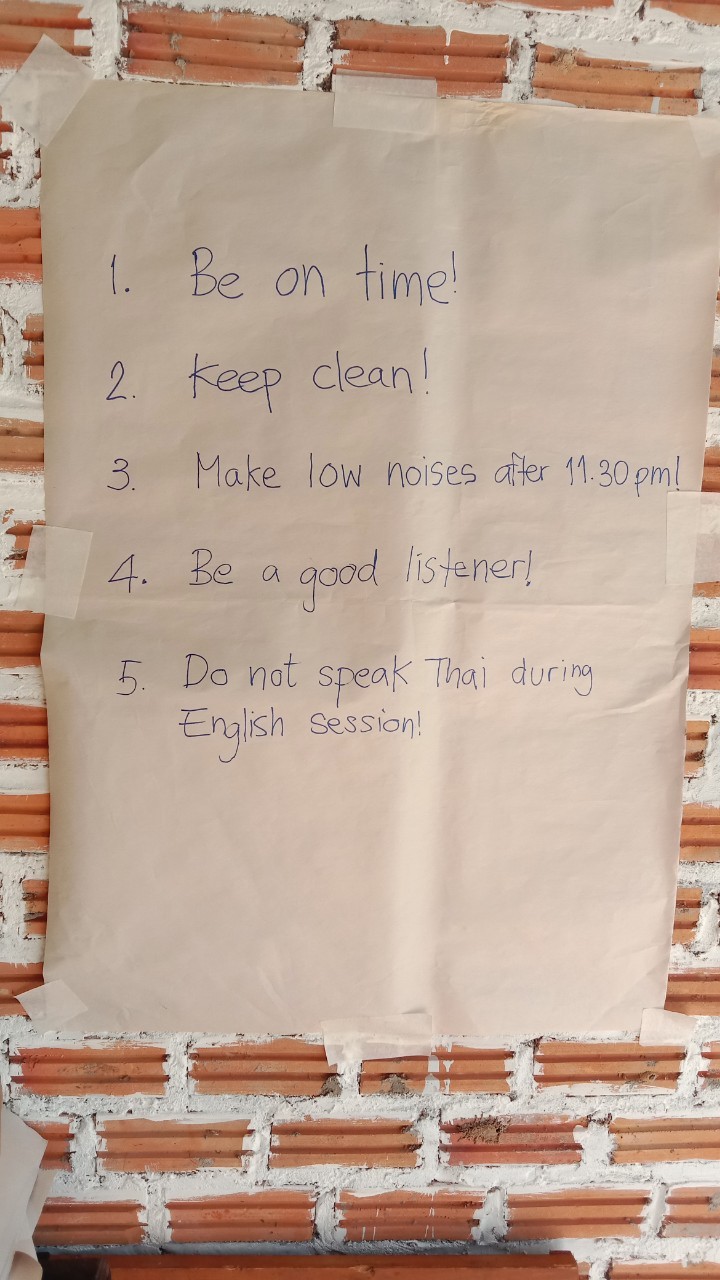 1. Be on time!
2. Keep clean!
3. Make low noises after 11.30pm!
4. Be a good listener!
5. Do not speak Thai during
English session!